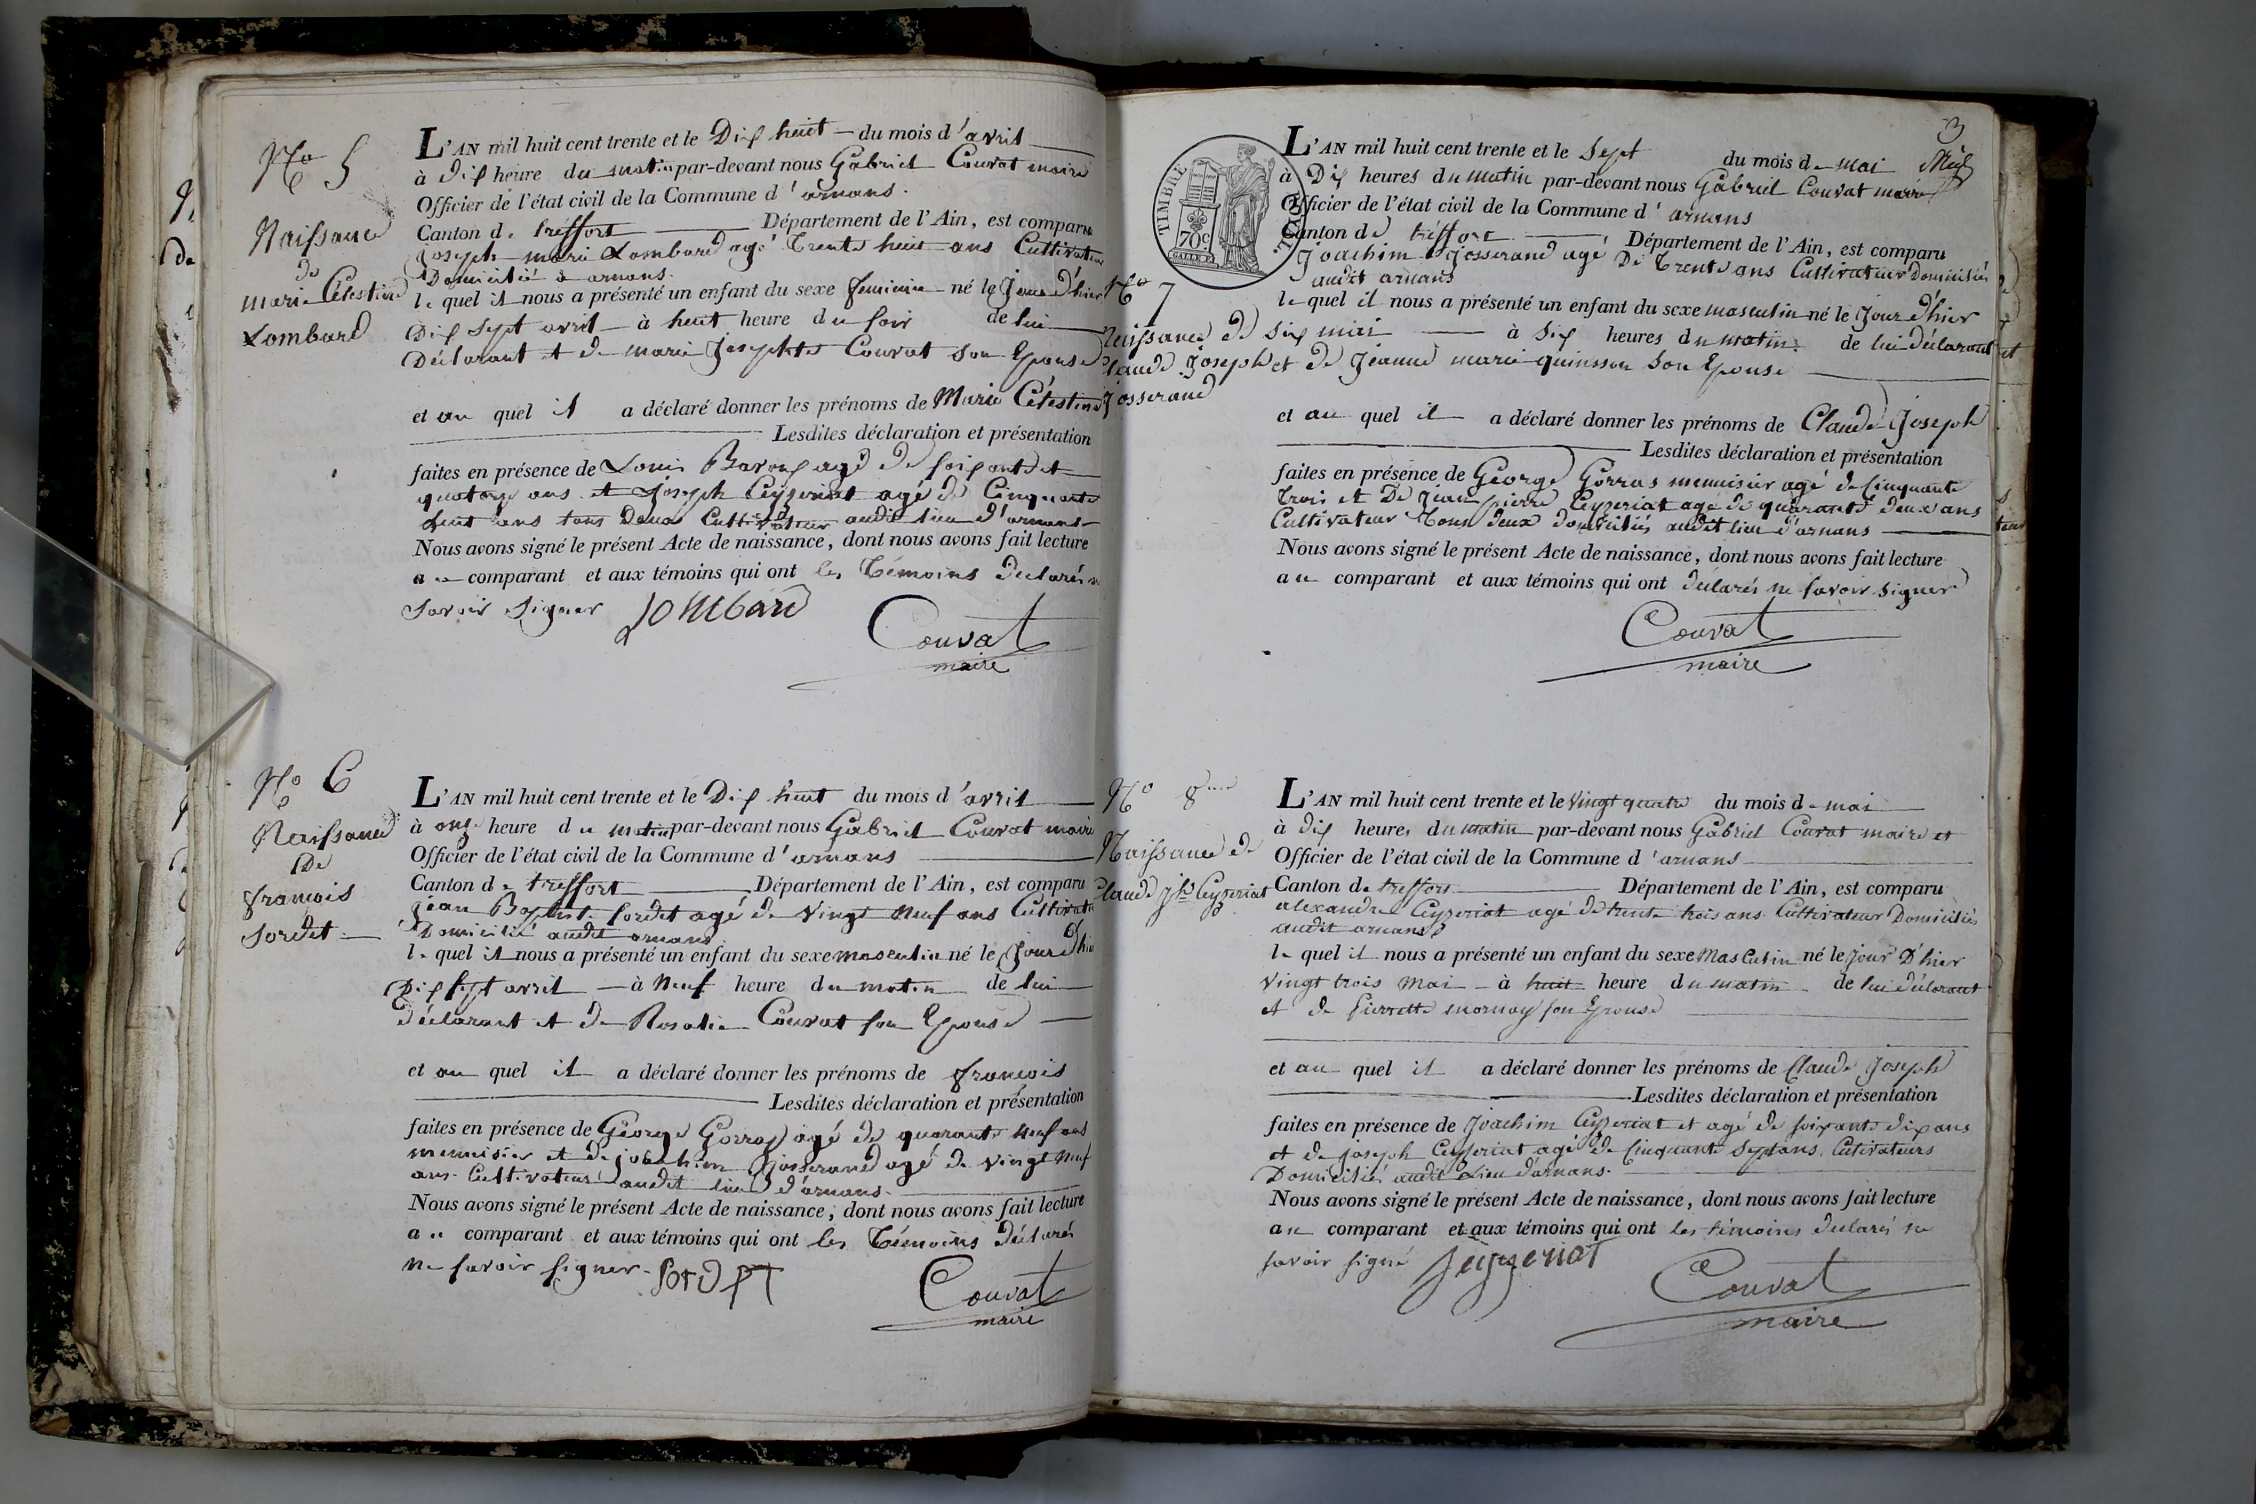 No 5
Naissance
de
marie Célestine
Lombard
L'AN mil huit cent trente et le Dix huit du mois d'avril
à dix heure du matin par-devant nous Gabriel Couvat maire
Officier de l'état civil de la Commune d'arnans.
Canton de treffort Département de l'Ain, est comparu
Joseph marie Lombard agé Trente huit ans Cultivateur
Domicilié à arnans.
le quel il nous a présenté un enfant du sexe feminin né le Jour d'hier
Dix sept avril à huit heure du soir de lui
Déclarant et de marie Josephte Couvat son Epouse
et au quel il a déclaré donner les prénoms de Marie Célestine
Lesdites déclaration et présentation
faites en présence de Louis agé de soixante et
quatorze ans et Joseph Ceyzeriat agé de Cinquante
sept ans tous Deux Cultivateur audit lieu d'arnans
Nous avons signé le présent Acte de naissance, dont nous avons fait lecture
au comparant et aux témoins qui ont les Témoins déclarés ne
savoir signer Lombard
Couvat
maire
No 6
Naissance
De
françois
sordet
L'AN mil huit cent trente et le Dix huit du mois d'avril
à onze heure du matin par-devant nous Gabriel Couvat maire
Officier de l'état civil de la Commune d'arnans
Canton de treffort Département de l'Ain, est comparu
jean Baptiste sordet agé de vingt neuf ans Cultivateur
Domicilié audit arnans
le quel il nous a présenté un enfant du sexe masculin né le Jour d'hier
Dix sept avril à Neuf heure du matin de lui
déclarant et de Rosalie Couvat son Epouse
et au quel il a déclaré donner les prénoms de françois
Lesdites déclaration et présentation
faites en présence de George Gorras agé de quarante neuf ans
menuisier et de joachim josserand agé de vingt neuf
ans Cultivateur audit lieu d'arnans.
Nous avons signé le présent Acte de naissance, dont nous avons fait lecture
au comparant et aux témoins qui ont les Témoins déclarés
ne savoir signer. Sordet
Couvat
maire
3
TIMBLE ROYAL
70c
No 7
Naissance de
Claude Joseph
Josserand
L'AN mil huit cent trente et le Sept du mois de mai
à Dix heures du matin par-devant nous Gabriel Couvat maire
Officier de l'état civil de la Commune d'arnans
Canton de treffort Département de l'Ain, est comparu
Joachim Josserand agé De Trente ans Cultivateur Domiciliés
audit arnans
le quel il nous a présenté un enfant du sexe masculin né le Jour d'hier
six mai à six heures du matin de lui déclarant
et de Jeanne marie quinsson son Epouse
et au quel il a déclaré donner les prénoms de Claude Joseph
Lesdites déclaration et présentation
faites en présence de George Gorras menuisier agé de Cinquante
trois et De Jean pierre Ceyzeriat agé de quarante deux ans
Cultivateur Tous deux domiciliés audit lieu d'arnans
Nous avons signé le présent Acte de naissance, dont nous avons fait lecture
au comparant et aux témoins qui ont déclarés ne savoir signer
Couvat
maire
No 8
Naissance de
Claude Jph Ceyzeriat
L'AN mil huit cent trente et le vingt quatre du mois de mai
à dix heures du matin par-devant nous Gabriel Couvat maire et
Officier de l'état civil de la Commune d'arnans
Canton de treffort Département de l'Ain, est comparu
alexandre Ceyzeriat agé de trente trois ans Cultivateur Domiciliés
audit arnans
le quel il nous a présenté un enfant du sexe Masculin né le jour D'hier
vingt trois mai à huit heure du matin de lui déclarant
et de Pierrette mornay son Epouse
et au quel il a déclaré donner les prénoms de Claude Joseph
Lesdites déclaration et présentation
faites en présence de Joachim Ceyzeriat et agé de soixante dix ans
et de joseph Ceyzeriat agé de Cinquante Sept ans. Cultivateurs
Domiciliés audit Lieu d'arnans.
Nous avons signé le présent Acte de naissance, dont nous avons fait lecture
au comparant et aux témoins qui ont les témoins déclarés ne
savoir signé Ceyzeriat
Couvat
maire